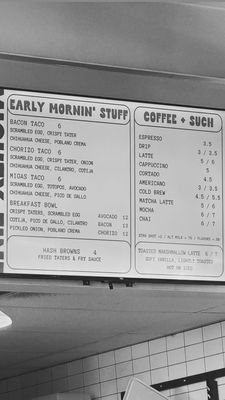 EARLY MORNIN' STUFF
BACON TACO 6
SCRAMBLED EGG, CRISPY TATER
CHIHUAHUA CHEESE, POBLANO CREMA
CHORIZO TACO 6
SCRAMBLED EGG, CRISPY TATER, ONION
CHIHUAHUA CHEESE, CILANTRO, COTIJA
MIGAS TACO 6
SCRAMBLED EGG, TOTOPOS, AVOCADO
CHIHUAHUA CHEESE, PICO DE GALLO
BREAKFAST BOWL
CRISPY TATERS, SCRAMBLED EGG AVOCADO 12
COTIJA, PICO DE GALLO, CILANTRO BACON 13
PICKLED ONION, POBLANO CREMA CHORIZO 12
HASH BROWNS 4
FRIED TATERS & FRY SAUCE
COFFEE + SUCH
ESPRESSO 3.5
DRIP 3 / 3.5
LATTE 5 / 6
CAPPUCCINO 5
CORTADO 4.5
AMERICANO 3 / 3.5
COLD BREW 4.5 / 5.5
MATCHA LATTE 5 / 6
MOCHA 6 / 7
CHAI 6 / 7
XTRA SHOT +2 / ALT MILK + 75 / FLAVORS + 50
TOASTED MARSHMALLOW LATTE 6 / 7
SOFT VANILLA, LIGHTLY TOASTED
HOT OR ICED